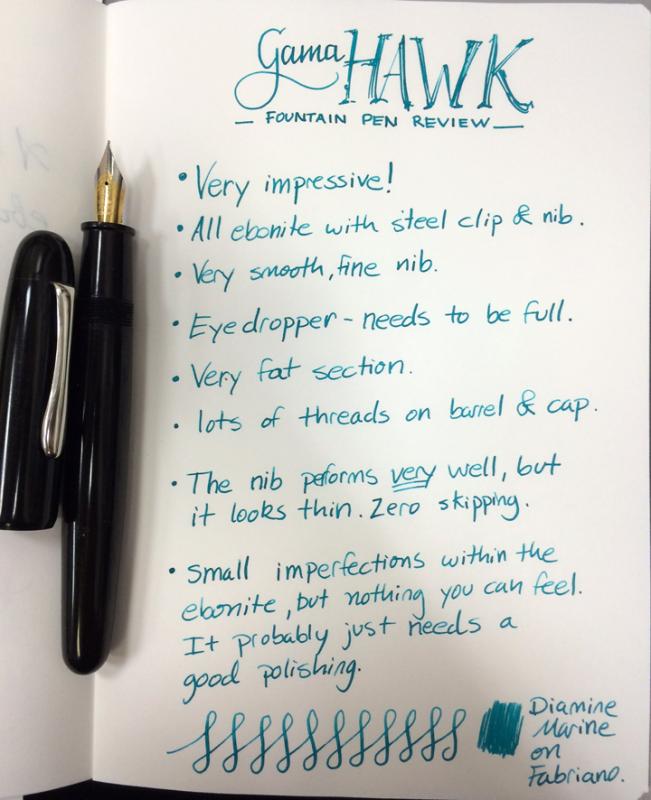 Gama HAWK
— FOUNTAIN PEN REVIEW —
• Very impressive!
• All ebonite with steel clip & nib.
• Very smooth, fine nib.
• Eyedropper - needs to be full.
• Very fat section.
• lots of threads on barrel & cap.
• The nib peforms very well, but
it looks thin. Zero skipping.
• Small imperfections within the
ebonite, but nothing you can feel.
It probably just needs a
good polishing.
Diamine
Marine
on
Fabriano.